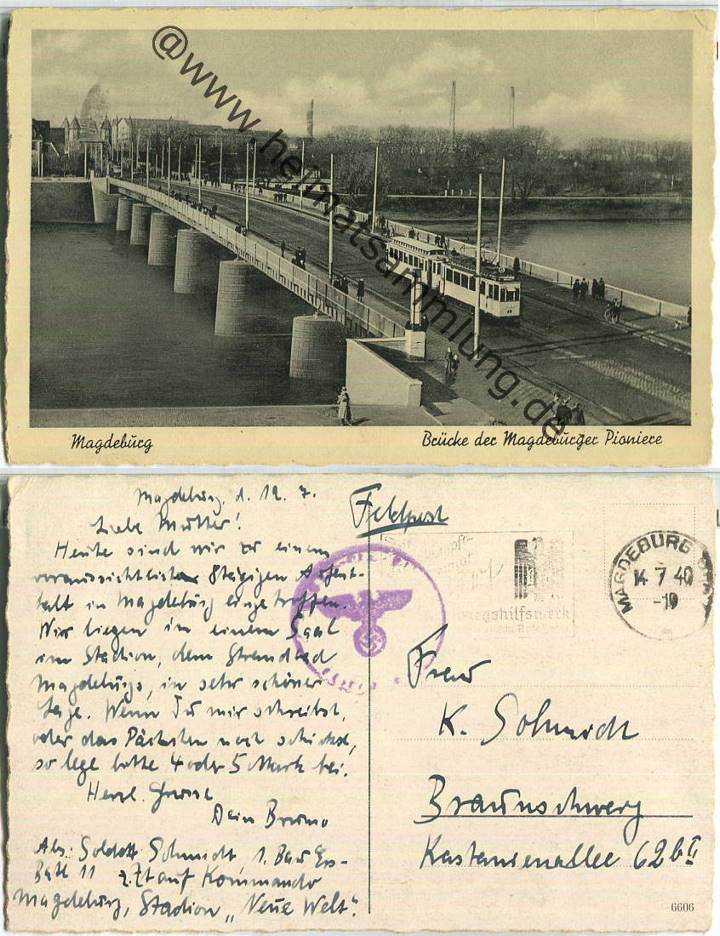 @www.heimatsammlung.de
Magdeburg
Brücke der Magdeburger Pioniere
Magdeburg, d. 12. 7.
Liebe Mutter!
Heute sind wir zu einem
voraussichtlich 8tägigen Aufent-
halt in Magdeburg eingetroffen.
Wir liegen in einem Saal
im Stadion, dem Strandbad
Magdeburgs, in sehr schöner
Lage. Wenn Du mir schreibst,
oder das Päckchen noch schickst,
so lege bitte 4 oder 5 Mark bei.
Herzl. Grüsse
Dein Bruno
Abs: Soldat Schmidt, 1. Bau Ers-
Batl 11 z.Zt auf Kommando
Magdeburg, Stadion „Neue Welt".
Feldpost
Kriegshilfswerk
MAGDEBURG
14 7 40
-19
Frau
K. Schmidt
Braunschweig
Kastanienallee 62b II
6606